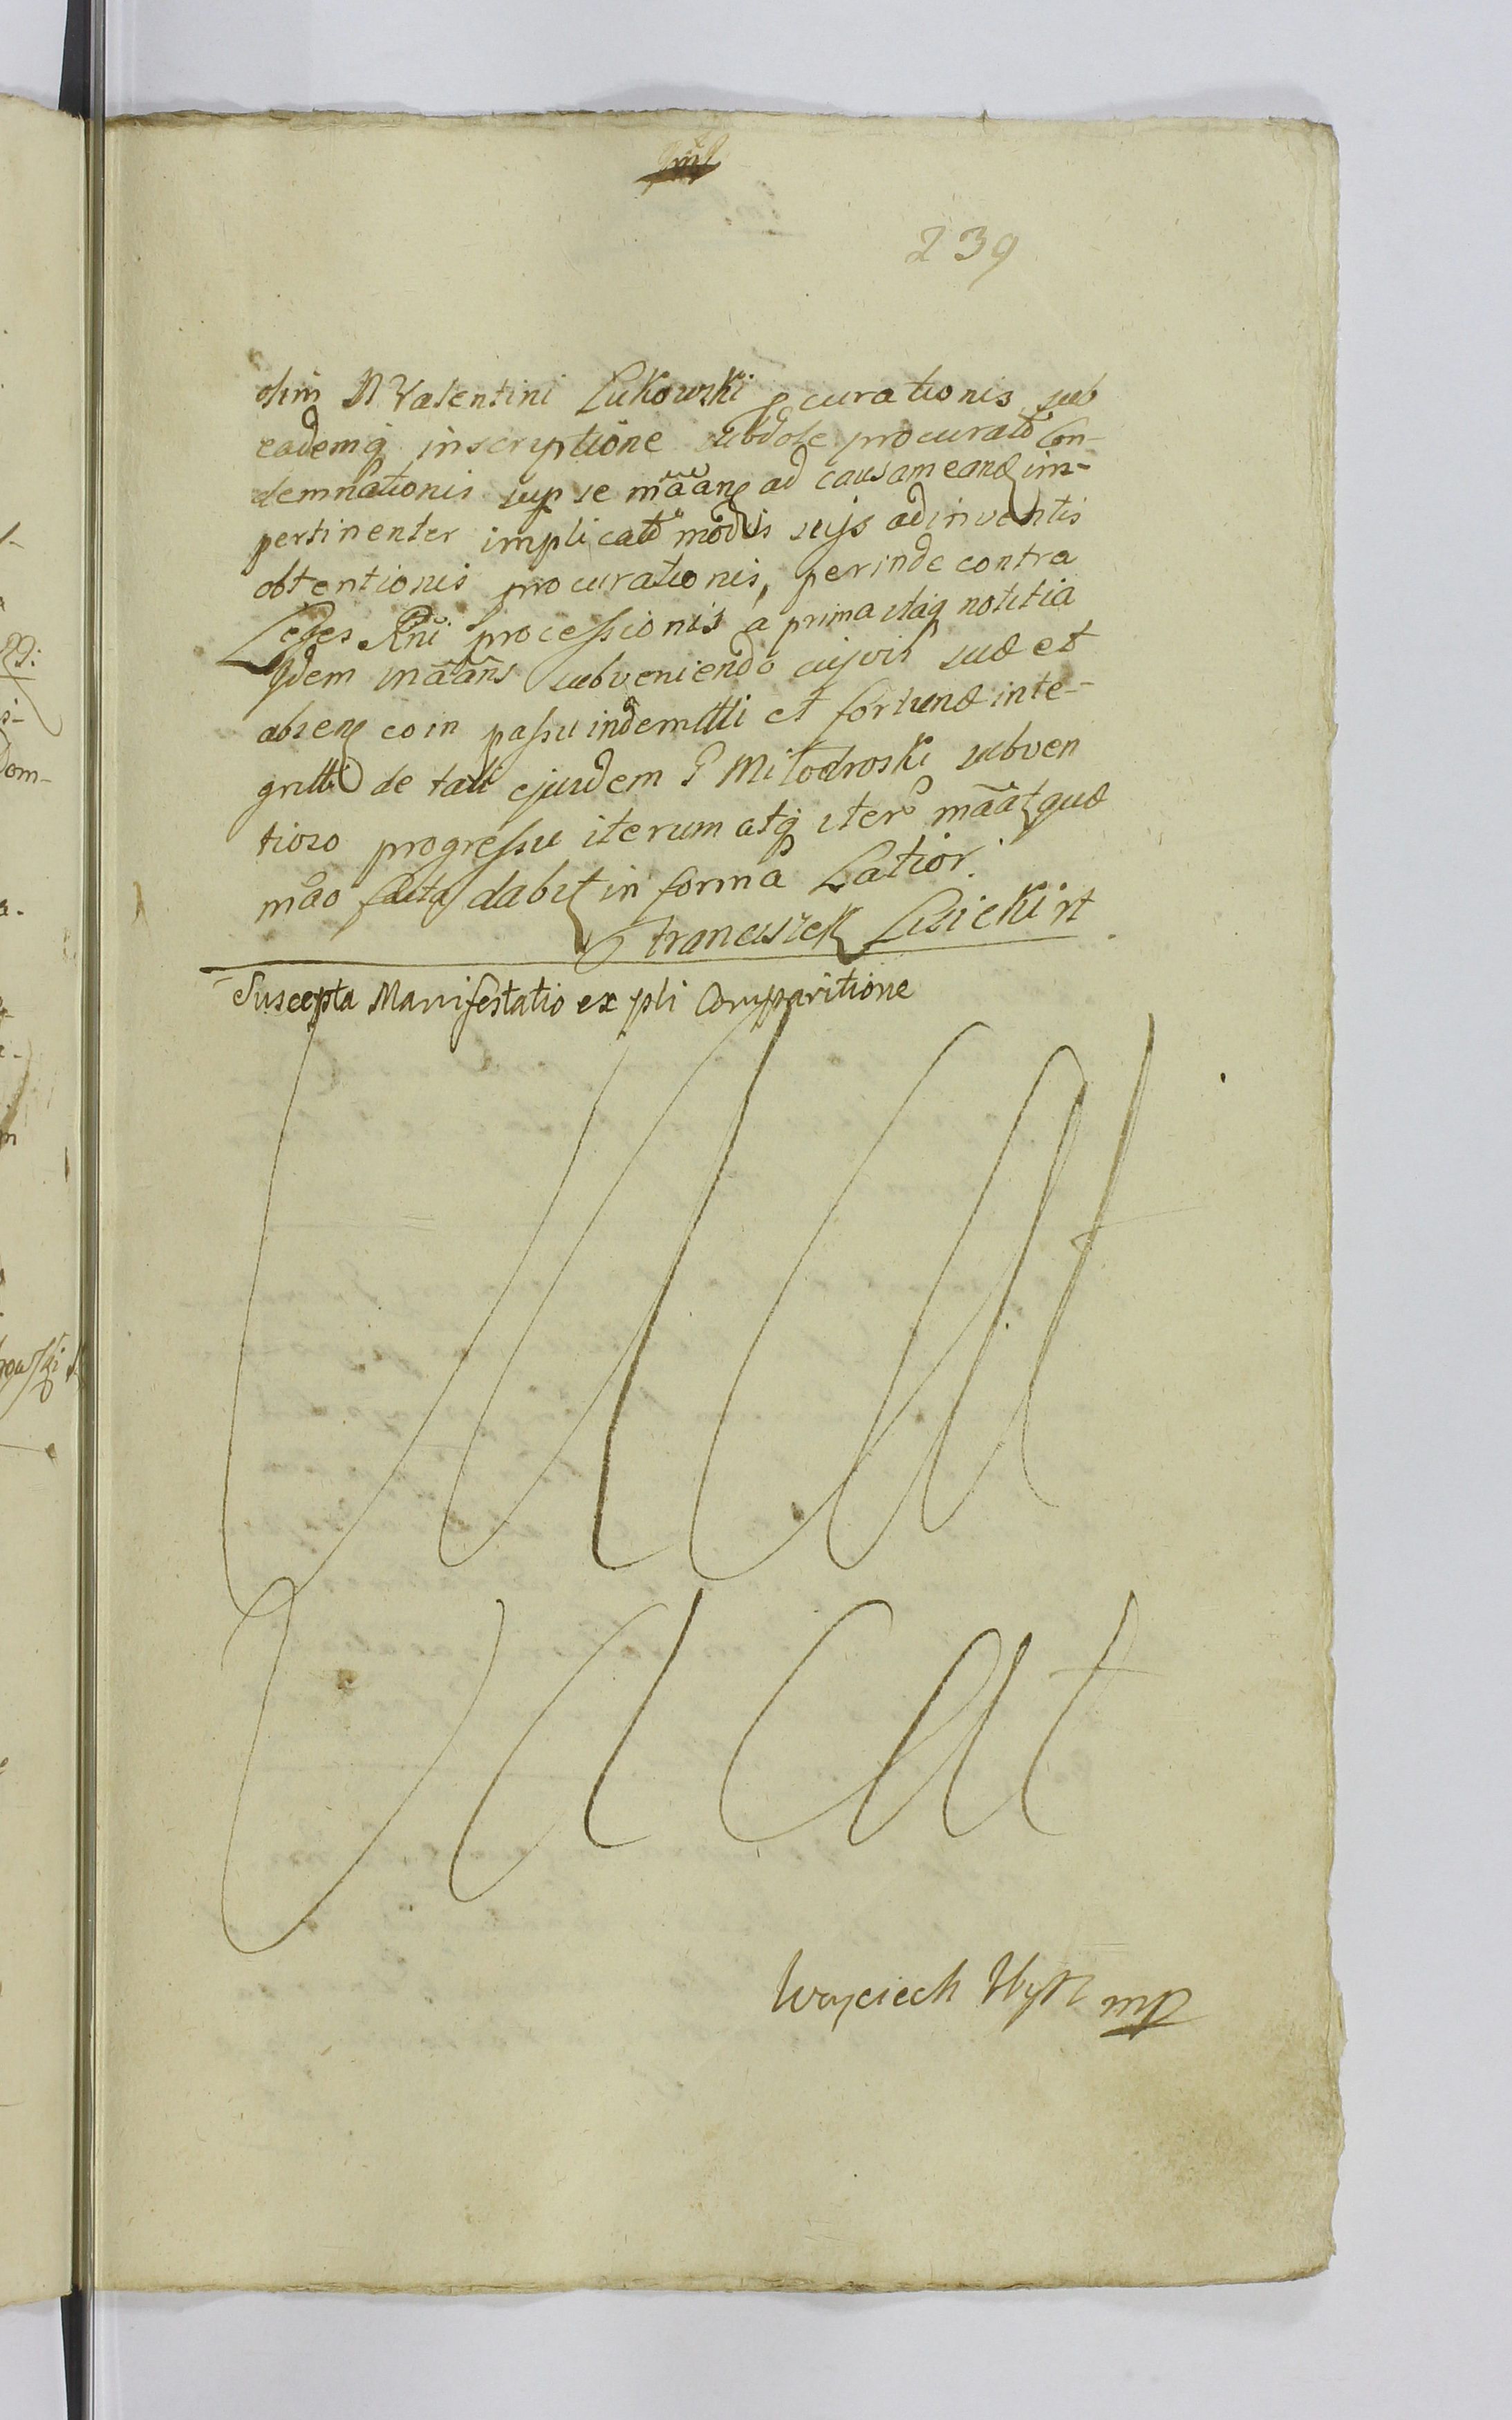 239
olim N Valentini Łukowski pcurationis sub
eademq inscriptione subdole procurato Con-
demnationis sup se mãan ad causam eand im-
pertinenter implicato modis sujs adinventis
obtentionis procurationis, perinde contra
Leges Rni processionis a prima itaq notitia
Idem mãans subveniendo cujvis suæ et
absen eo in passu indemtti et fortunæ inte-
gritti de tali ejusdem P Milodroski subven
tioso progressu iterum atq iter mãat quæ
mão facta dabit in forma Latior.
Franciszek Lisicki rt
Suscepta Manifestatio ex pli Comparitione
Vacat
Vacat
Woyciech mp